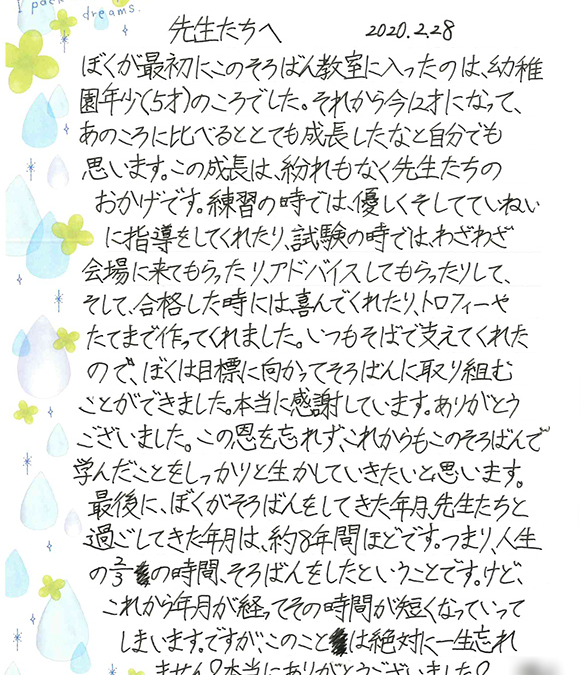 I pack
dreams.
先生たちへ 2020.2.28
ぼくが最初にこのそろばん教室に入ったのは、幼稚
園年少(5才)のころでした。それから今12才になって、
あのころに比べるととても成長したなと自分でも
思います。この成長は、紛れもなく先生たちの
おかげです。練習の時では、優しくそしてていねい
に指導をしてくれたり、試験の時では、わざわざ
会場に来てもらったり、アドバイスしてもらったりして、
そして、合格した時には、喜んでくれたり、トロフィーや
たてまで作ってくれました。いつもそばで支えてくれた
ので、ぼくは目標に向かってそろばんに取り組む
ことができました。本当に感謝しています。ありがとう
ございました。この恩を忘れず、これからもこのそろばんで
学んだことをしっかりと生かしていきたいと思います。
最後に、ぼくがそろばんをしてきた年月、先生たちと
過ごしてきた年月は、約8年間ほどです。つまり、人生
の2/3の時間、そろばんをしたということです。けど、
これから年月が経ってその時間が短くなっていって
しまいます。ですが、このことは絶対に一生忘れ
ません!本当にありがとうございました!